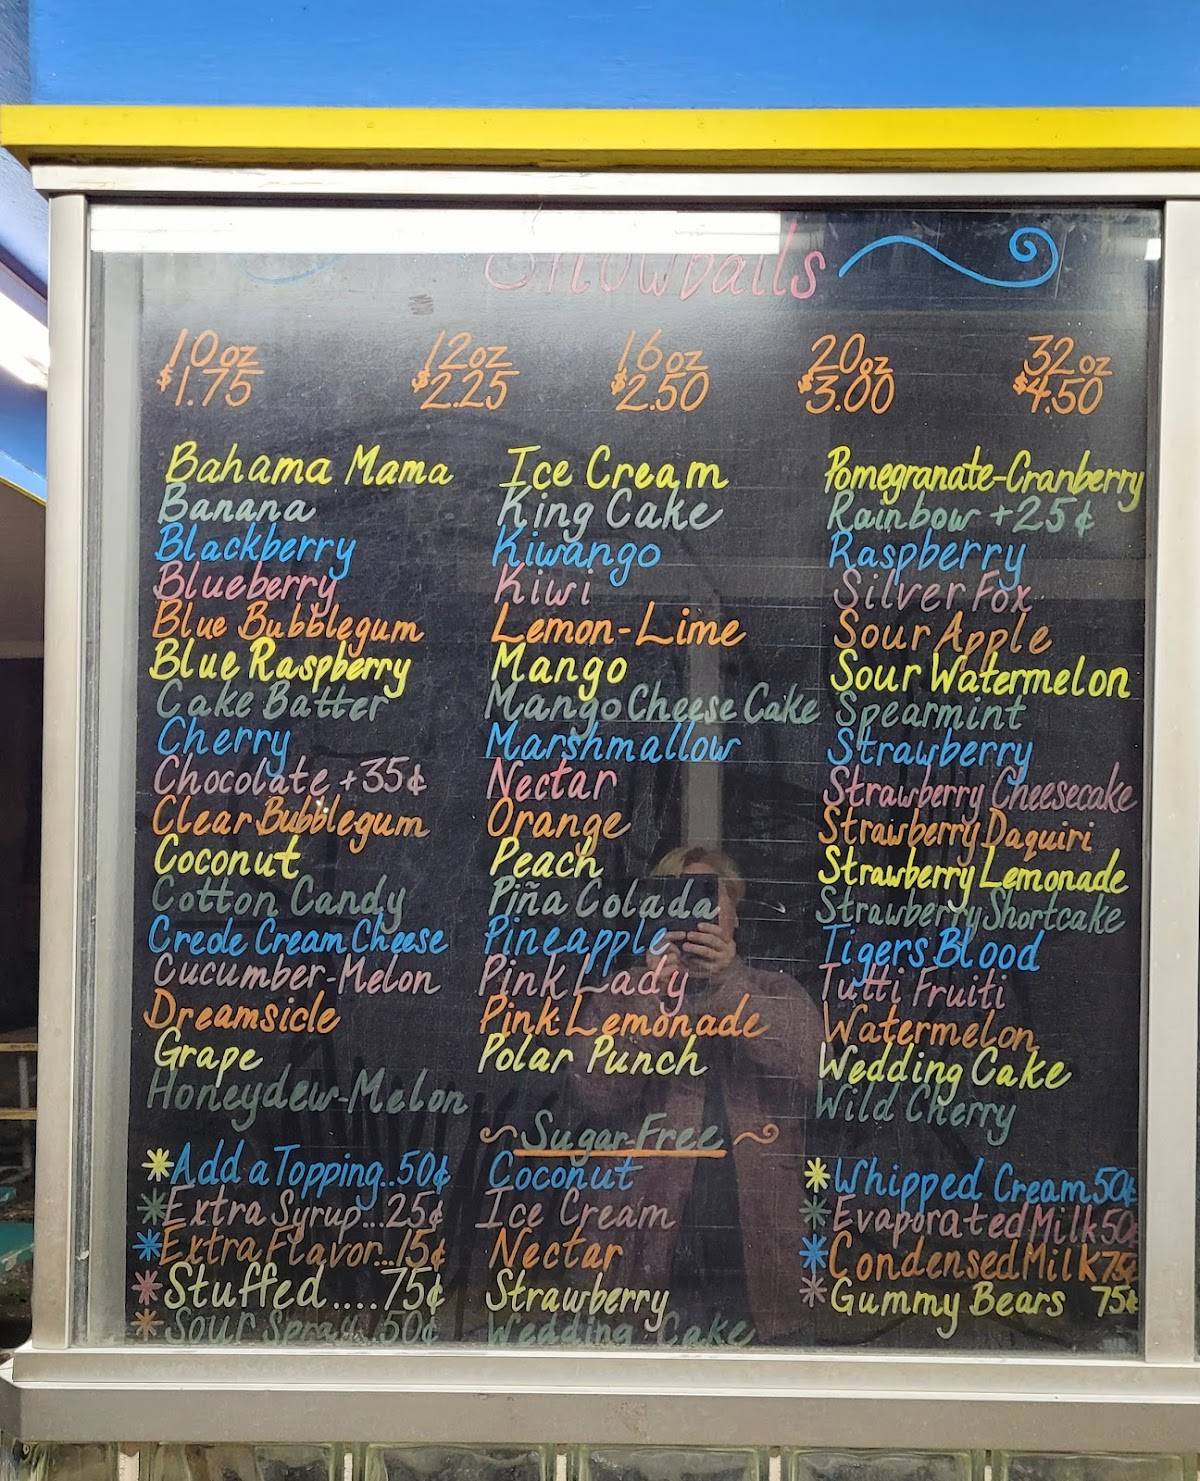 Snowballs
10oz 12oz 16oz 20oz 32oz
$1.75 $2.25 $2.50 $3.00 $4.50
Bahama Mama
Banana
Blackberry
Blueberry
Blue Bubblegum
Blue Raspberry
Cake Batter
Cherry
Chocolate +35¢
Clear Bubblegum
Coconut
Cotton Candy
Creole Cream Cheese
Cucumber-Melon
Dreamsicle
Grape
Honeydew-Melon
*Add a Topping..50¢
*Extra Syrup...25¢
*Extra Flavor...15¢
*Stuffed....75¢
*Sour Spray..50¢
Ice Cream
King Cake
Kiwango
Kiwi
Lemon-Lime
Mango
Mango Cheese Cake
Marshmallow
Nectar
Orange
Peach
Piña Colada
Pineapple
Pink Lady
Pink Lemonade
Polar Punch
~Sugar-Free~
Coconut
Ice Cream
Nectar
Strawberry
Wedding Cake
Pomegranate-Cranberry
Rainbow +25¢
Raspberry
Silver Fox
Sour Apple
Sour Watermelon
Spearmint
Strawberry
Strawberry Cheesecake
Strawberry Daquiri
Strawberry Lemonade
Strawberry Shortcake
Tigers Blood
Tutti Fruiti
Watermelon
Wedding Cake
Wild Cherry
*Whipped Cream 50¢
*Evaporated Milk 50¢
*Condensed Milk 75¢
*Gummy Bears 75¢